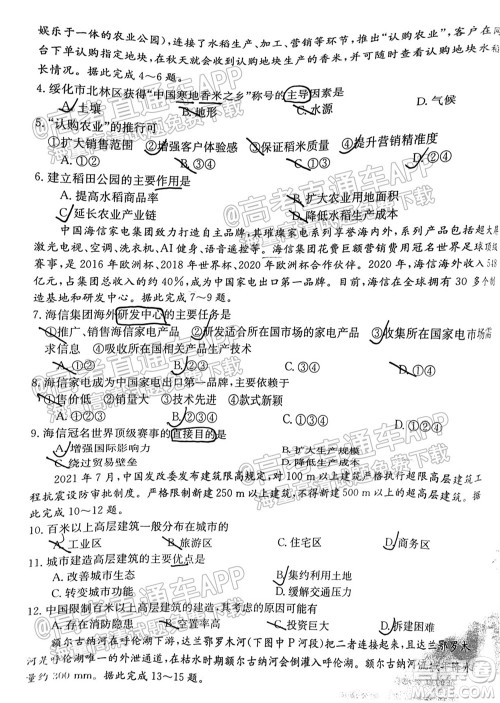 娱乐于一体的农业公园)，连接了水稻生产、加工、营销等环节，并推出“认购农业”，客户在网
台下单认购指定地块，在认购地块生产的米，并可随时观看认购地块水稻
长情况。据此完成4～6题。
4. 绥化市北林区获得“中国寒地香米之乡”称号的主导因素是
A. 土壤 B. 地形 C. 水源 D. 气候
5. “认购农业”的推行可
①扩大销售范围 ②增强客户体验感 ③保证稻米质量 ④提升营销精准度
A. ①② B. ③④ C. ①③ D. ②④
6. 建立稻田公园的主要作用是
A. 提高水稻商品率 B. 扩大农业用地面积
C. 延长农业产业链 D. 降低水稻生产成本
中国海信家电集团致力打造自主品牌，其璀璨家电系列享誉海内外，系列产品包括超大屏
激光电视、空调、洗衣机、AI健身、语音遥控等。海信集团花费巨额营销费用冠名世界顶级
赛事，是2016年欧洲杯、2018年世界杯、2020年欧洲杯合作伙伴。2020年，海信海外收入548
亿元，占集团总收入的约40%，成为中国家电出口第一品牌。目前，海信在全球拥有30多个
制造基地和研发中心。据此完成7～9题。
7. 海信集团海外研发中心的主要任务是
①推广、销售海信家电产品 ②研发适合所在国市场的家电产品 ③收集所在国家电市场需
求信息 ④吸收所在国相关产品生产技术
A. ①② B. ③④ C. ①④ D. ②③
8. 海信家电成为中国家电出口第一品牌，主要依赖于
①售价低 ②销量大 ③技术先进 ④款式新颖
A. ①② B. ③④ C. ①③④ D. ②③④
9. 海信冠名世界顶级赛事的直接目的是
A. 增强国际影响力 B. 扩大生产规模
C. 绕过贸易壁垒 D. 降低生产成本
2021年7月，中国发改委发布建筑限高规定，对100m以上建筑严格执行超限高层建筑工
程抗震设防审批制度。严格限制新建250m以上建筑，不得新建500m以上的超高层建筑。
据此完成10～12题。
10. 百米以上高层建筑一般分布在城市的
A. 工业区 B. 旅游区 C. 住宅区 D. 商务区
11. 城市建造高层建筑的主要优点是
A. 改善城市生态 B. 集约利用土地
C. 转变城市功能 D. 降低建筑成本
12. 中国限制百米以上高层建筑的建造，其考虑的原因可能有
A. 存在消防隐患 B. 空置率高 C. 投资巨大 D. 拆建困难
额尔古纳河在呼伦湖下游，达兰鄂罗木河(下图中P河段)把二者连接起来，且达兰鄂罗木
河是呼伦湖唯一的外泄通道，在枯水时期额尔古纳河会倒灌入呼伦湖。
量约300mm。据此完成13～15题。
高考直通车APP
海量高清试题免费下载